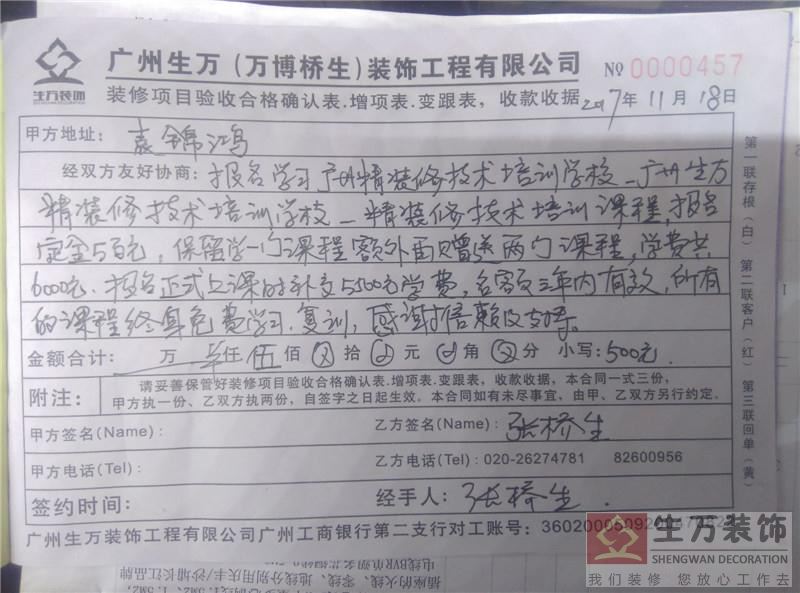 广州生万(万博桥生)装饰工程有限公司 № 0000457
生万装饰
装修项目验收合格确认表.增项表.变跟表，收款收据 2017年11月18日
甲方地址：袁锦鸿
经双方友好协商：报名学习广州精装修技术培训学校—广州生万
精装修技术培训学校—精装修技术培训课程，报名
定金5百元，保留学一门课程额外再赠送两门课程，学费共
6000元.报名正式上课时补交5500元学费，名额三年内有效，所有
的课程终身免费学习.复训，感谢信赖及支持。
金额合计： 万 仟伍佰 拾 元 角 分 小写：500元
附注：
请妥善保管好装修项目验收合格确认表.增项表.变跟表，收款收据，本合同一式三份，
甲方执一份、乙双方执两份，自签字之日起生效。本合同如有未尽事宜，由甲、乙双方另行约定。
甲方签名(Name)： 乙方签名(Name)：张桥生
甲方电话(Tel)： 乙方电话(Tel)：020-26274781 82600956
签约时间： 经手人：张桥生.
广州生万装饰工程有限公司广州工商银行第二支行对工账号：3602000509200
第一联存根(白) 第二联客户(红) 第三联回单(黄)
生万装饰
SHENGWAN DECORATION
我们装修 您放心工作去